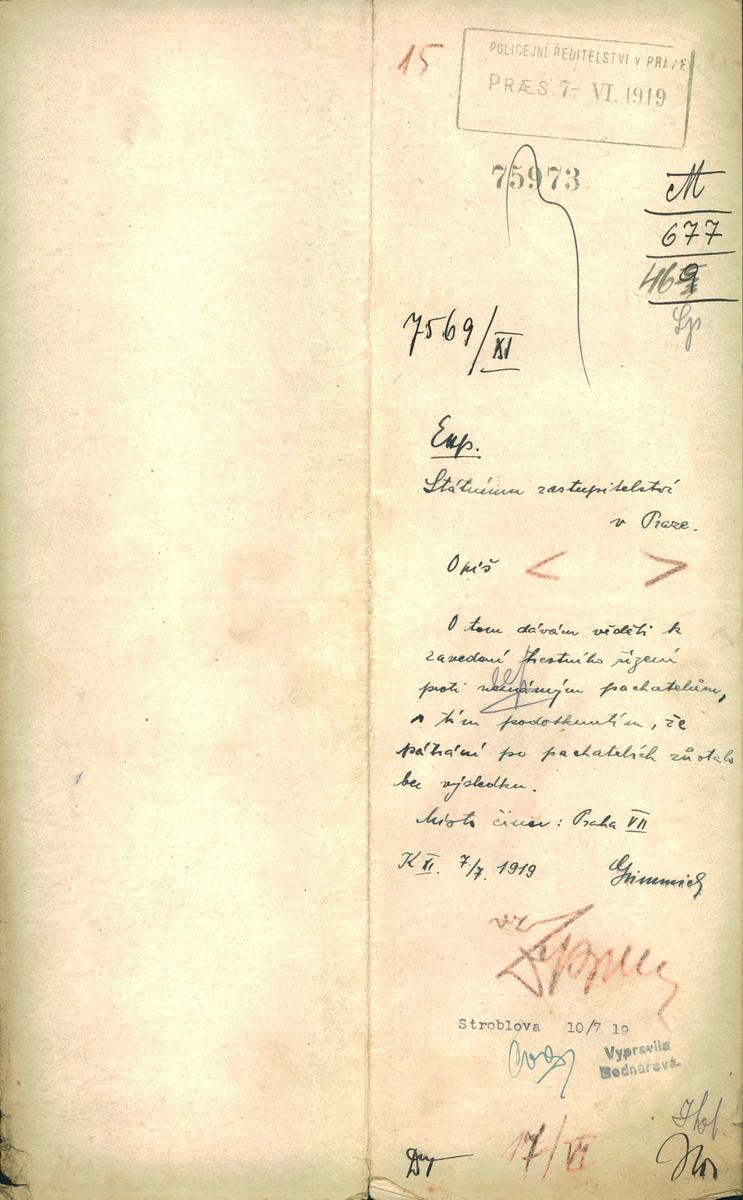 15
POLICEJNÍ ŘEDITELSTVÍ V PRAZE
PRÆS. 7- VI. 1919
75973
M
677
469
7569/XI
Exp.
Státnímu zastupitelství
v Praze.
Opiš < >
O tom dávám věděti k
zavedení trestního řízení
proti neznámým pachatelům,
s tím podotknutím, že
pátrání po pachatelích zůstalo
bez výsledku.
Místo činu: Praha VII
K XI. 7/7. 1919
Stroblova 10/7 19
Vypravila
Bednářová.
17/VI